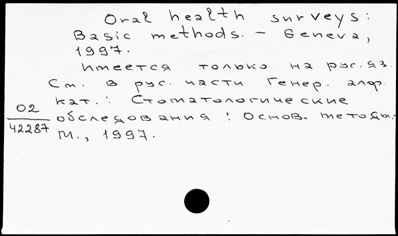 Oral health surveys:
Basic methods. - Geneva,
1997.
Имеется только на рус. яз.
См. в рус. части Генер. алф.
кат.: Стоматологические
обследования: Основ. методы.
М., 1997.
02
42287